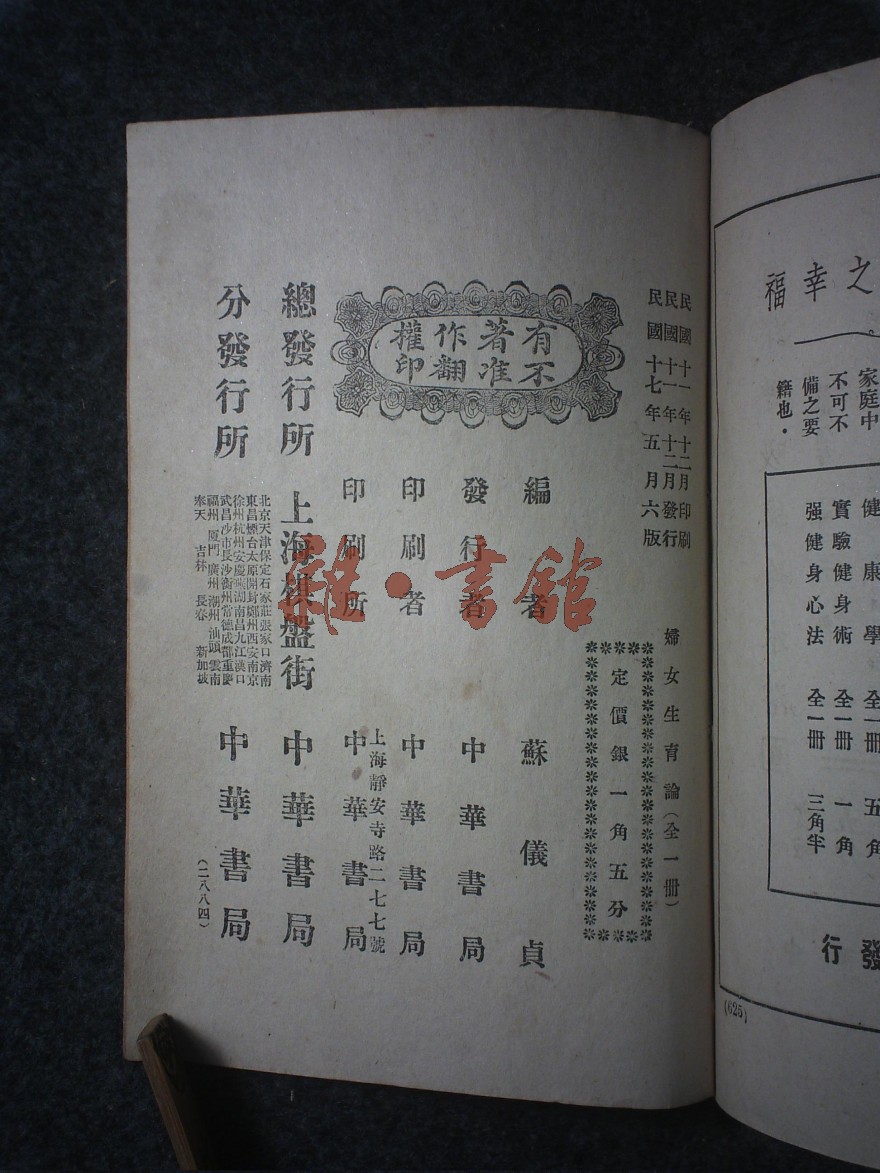 之幸福
家庭中
不可不
備之要
籍也．
健康學 全一冊 五角
實驗健身術 全一冊 一角
强健身心法 全一冊 三角半
發行
(625)
民國十一年十二月印刷
民國十一年十二月發行
民國十七年五月六版
婦女生育論（全一冊）
定價銀一角五分
有著作權
不准翻印
編者 蘇儀貞
發行者 中華書局
印刷者 中華書局
上海靜安寺路二七七號
印刷所 中華書局
總發行所 上海棋盤街 中華書局
分發行所
北京天津保定石家莊張家口濟南
東昌煙台太原開封鄭州西安南京
徐州杭州安慶蕪湖南昌九江漢口
武昌沙市長沙衡州常德成都重慶
福州廈門廣州潮州汕頭雲南
奉天吉林長春新加坡
中華書局
（二八八四）
雜·書館